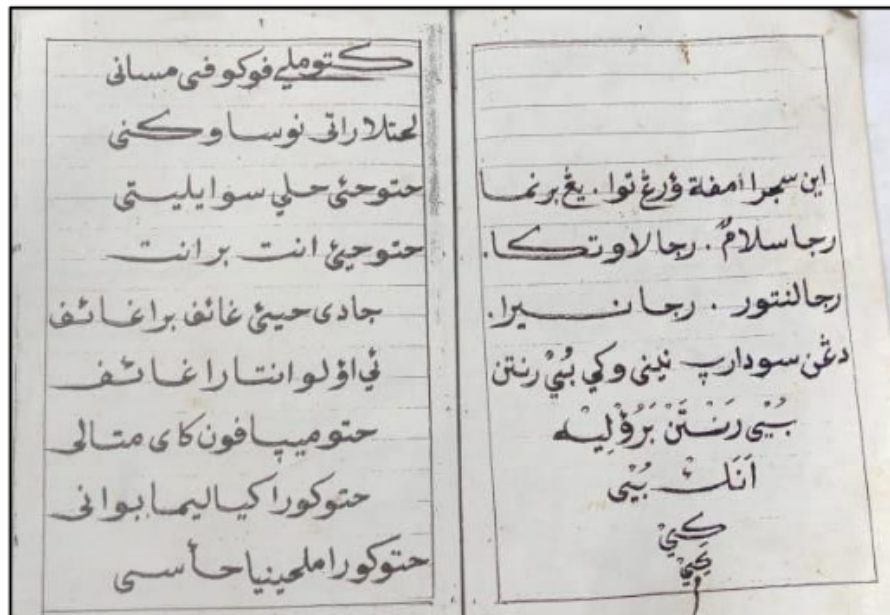 اين سجرا امفة ؤرغ توا. يڠ برنما
رجا سلام. رجا لاوتكا.
رجا لنتور. رجا نسيرا.
دڠن سودارڽ نيني وكي بيي رنتن
بُيْي رَنْتَنْ بَرُؤْلِيْه
اَنَكْ بُيْي
كيي
كيي
١
كتوملي فوكو فى مسانى
لحتلاراتى نوسا وكنى
حتوحئى حلي سوايليتى
حتوحيئ انت برانت
جادى حيئى غائف براغائف
ئي اؤلو انتارا غائف
حتوميپافون كاى متالى
حتوكورا كياليما بوانى
حتوكورا ملحينيا حأسى